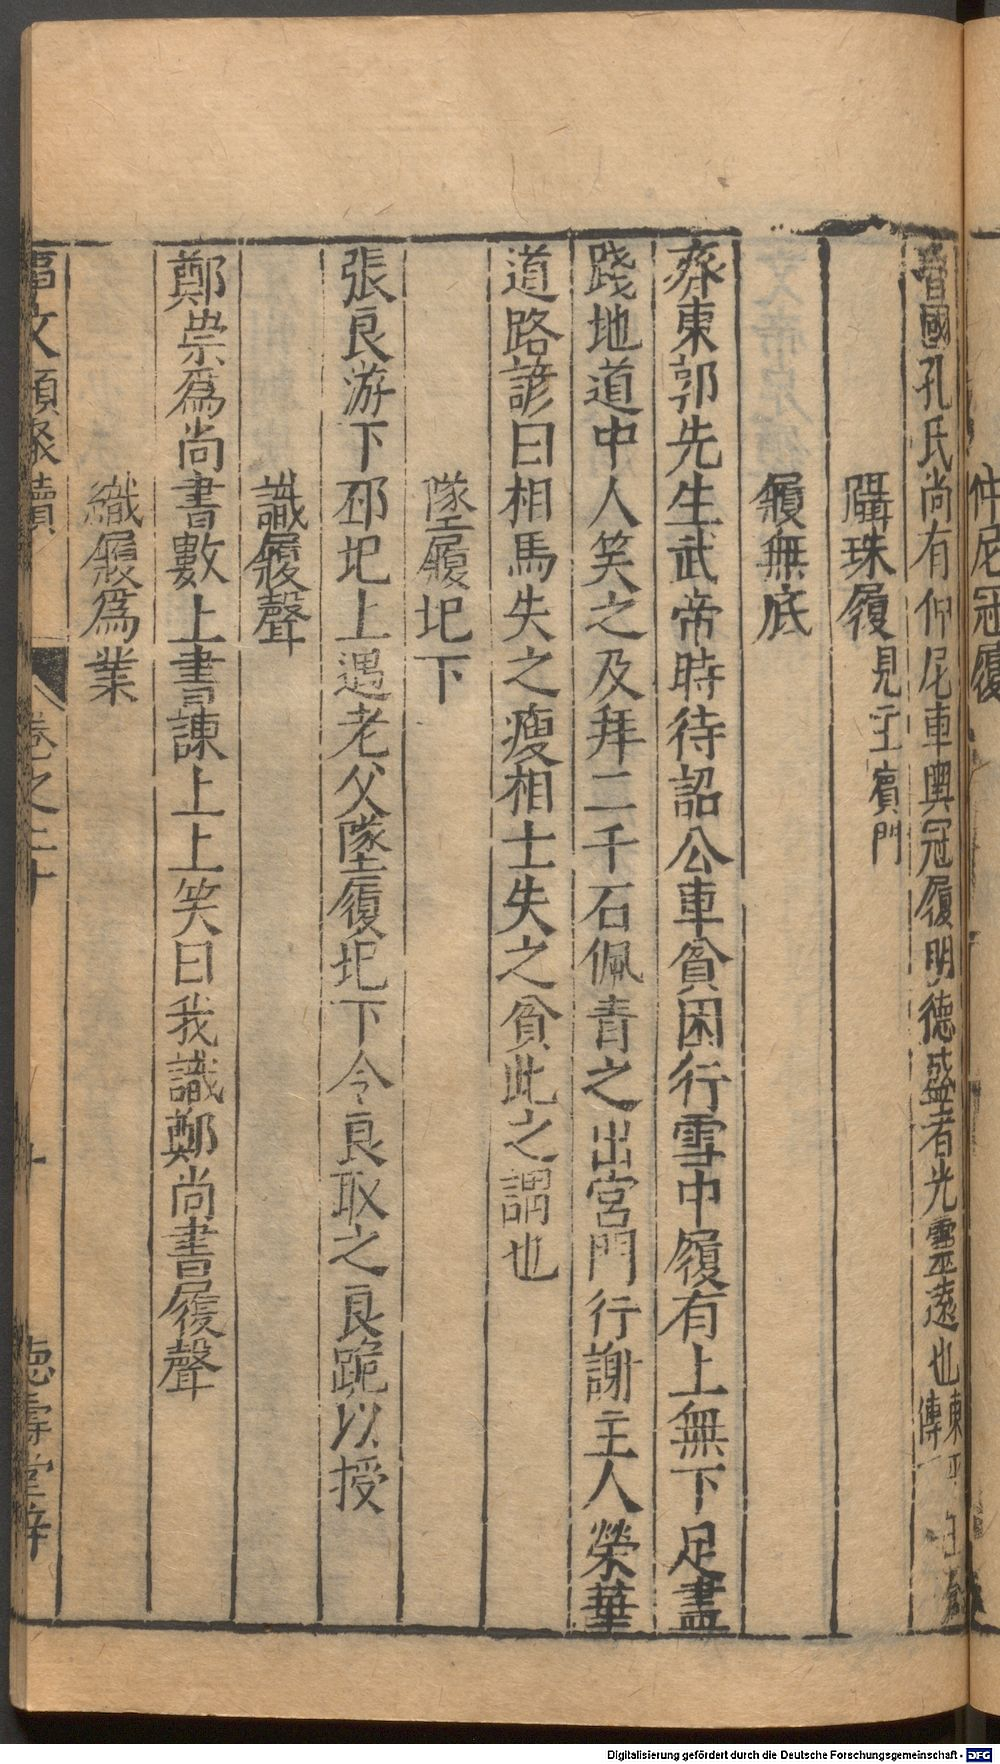 仲尼冠履
魯國孔氏尚有仲尼車輿冠履明德盛者光靈遠也東平王傳
躡珠履見主賓門
履無底
齊東郭先生武帝時待詔公車貧困行雪中履有上無下足盡
踐地道中人笑之及拜二千石佩青之出宮門行謝主人榮華
道路諺曰相馬失之瘦相士失之貧此之謂也
墜履圯下
張良游下邳圯上遇老父墜履圯下令良取之良跪以授
識履聲
鄭崇爲尚書數上書諫上上笑曰我識鄭尚書履聲
織履爲業
卷之二十
十
德壽堂梓
Digitalisierung gefördert durch die Deutsche Forschungsgemeinschaft - DFG